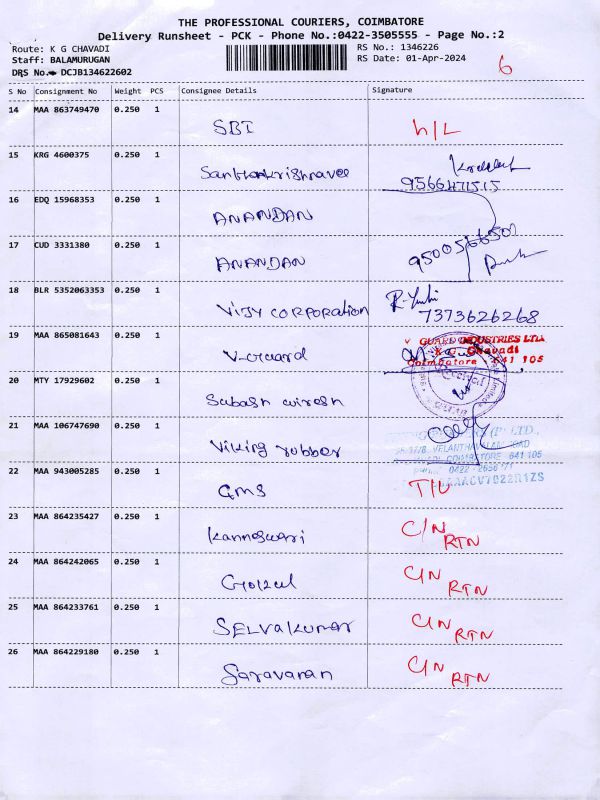 THE PROFESSIONAL COURIERS, COIMBATORE
Delivery Runsheet - PCK - Phone No.:0422-3505555 - Page No.:2
Route: K G CHAVADI RS No.: 1346226
Staff: BALAMURUGAN RS Date: 01-Apr-2024
DRS No. DCJB134622602 6
S No Consignment No Weight PCS Consignee Details Signature
14 MAA 863749470 0.250 1 SBI h/L
15 KRG 4600375 0.250 1
9566471515
16 EDQ 15968353 0.250 1 ANANDAN
17 CUD 3331380 0.250 1 ANANDAN 9500566501
18 BLR 5352063353 0.250 1 VIJY CORPORATION 7373626268
19 MAA 865081643 0.250 1 V-Guard GUARD INDUSTRIES LTD.
K.G. Chavadi
Coimbatore - 641 105
20 MTY 17929602 0.250 1 Subash wiresh
21 MAA 106747690 0.250 1 Viking rubber (P) LTD.,
ROAD
COIMBATORE 641 105
22 MAA 943005285 0.250 1 GMS T/U
23 MAA 864235427 0.250 1 Kanneswari C/N RTN
24 MAA 864242065 0.250 1 Gokul C/N RTN
25 MAA 864233761 0.250 1 SELVakumar C/N RTN
26 MAA 864229180 0.250 1 Saravanan C/N RTN